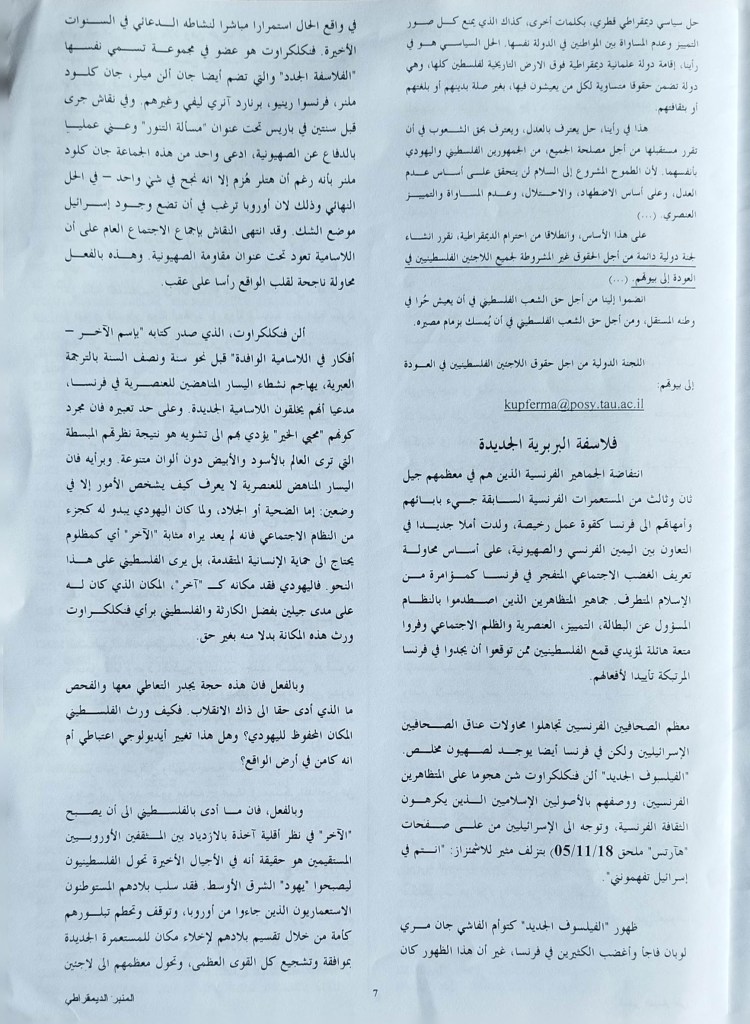 حل سياسي ديمقراطي قطري، بكلمات أخرى، كذاك الذي يمنع كل صور
التمييز وعدم المساواة بين المواطنين في الدولة نفسها. الحل السياسي هو في
رأينا، إقامة دولة علمانية ديمقراطية فوق الارض التاريخية لفلسطين كلها، وهي
دولة تضمن حقوقا متساوية لكل من يعيشون فيها، بغير صلة بدينهم أو بلغتهم
أو بثقافتهم.
هذا في رأينا، حل يعترف بالعدل، ويعترف بحق الشعوب في أن
تقرر مستقبلها من أجل مصلحة الجميع، من الجمهورين الفلسطيني واليهودي
بأنفسهما. لأن الطموح المشروع إلى السلام لن يتحقق على أساس عدم
العدل، وعلى أساس الاضطهاد، والاحتلال، وعدم المساواة والتمييز
العنصري. (...)
على هذا الأساس، وانطلاقا من احترام الديمقراطية، نقرر انشاء
لجنة دولية دائمة من أجل الحقوق غير المشروطة لجميع اللاجئين الفلسطينيين في
العودة إلى بيوتهم. (...)
انضموا إلينا من أجل حق الشعب الفلسطيني في أن يعيش حُرا في
وطنه المستقل، ومن أجل حق الشعب الفلسطيني في أن يُمسك بزمام مصيره.
اللجنة الدولية من اجل حقوق اللاجئين الفلسطينيين في العودة
إلى بيوتهم:
kupferma@posy.tau.ac.il
فلاسفة البربرية الجديدة
انتفاضة الجماهير الفرنسية الذين هم في معظمهم جيل
ثان وثالث من المستعمرات الفرنسية السابقة جيء بابائهم
وأمهاتهم الى فرنسا كقوة عمل رخيصة، ولدت أملا جديدا في
التعاون بين اليمين الفرنسي والصهيونية، على أساس محاولة
تعريف الغضب الاجتماعي المتفجر في فرنسا كمؤامرة من
الإسلام المتطرف. جماهير المتظاهرين الذين اصطدموا بالنظام
المسؤول عن البطالة، التمييز، العنصرية والظلم الاجتماعي وفروا
متعة هائلة لمؤيدي قمع الفلسطينيين ممن توقعوا أن يجدوا في فرنسا
المرتبكة تأييدا لأفعالهم.
معظم الصحافيين الفرنسيين تجاهلوا محاولات عناق الصحافيين
الإسرائيليين ولكن في فرنسا أيضا يوجد لصهيون مخلص.
"الفيلسوف الجديد" ألن فنكلكراوت شن هجوما على المتظاهرين
الفرنسيين، ووصفهم بالأصوليين الإسلاميين الذين يكرهون
الثقافة الفرنسية، وتوجه الى الإسرائيليين من على صفحات
"هآرتس" ملحق 05/11/18) بتزلف مثير للاشمئزاز: "انتم في
إسرائيل تفهمونني".
ظهور "الفيلسوف الجديد" كتوأم الفاشي جان مري
لوبان فاجأ وأغضب الكثيرين في فرنسا، غير أن هذا الظهور كان
في واقع الحال استمرارا مباشرا لنشاطه الدعائي في السنوات
الأخيرة. فنكلكراوت هو عضو في مجموعة تسمي نفسها
"الفلاسفة الجدد" والتي تضم أيضا جان ألن ميلر، جان كلود
ملنر، فرنسوا رينيو، برنارد آنري ليفي وغيرهم. وفي نقاش جرى
قبل سنتين في باريس تحت عنوان "مسألة التنور" وعني عمليا
بالدفاع عن الصهيونية، ادعى واحد من هذه الجماعة جان كلود
ملنر بأنه رغم أن هتلر هُزم إلا انه نجح في شئ واحد – في الحل
النهائي وذلك لان أوروبا ترغب في أن تضع وجود إسرائيل
موضع الشك. وقد انتهى النقاش بإجماع الاجتماع العام على أن
اللاسامية تعود تحت عنوان مقاومة الصهيونية. وهذه بالفعل
محاولة ناجحة لقلب الواقع رأسا على عقب.
ألن فنكلكراوت، الذي صدر كتابه "بإسم الآخر –
أفكار في اللاسامية الوافدة" قبل نحو سنة ونصف السنة بالترجمة
العبرية، يهاجم نشطاء اليسار المناهضين للعنصرية في فرنسا،
مدعيا أنهم يخلقون اللاسامية الجديدة. وعلى حد تعبيره فان مجرد
كونهم "محبي الخير" يؤدي بهم الى تشويه هو نتيجة نظرتهم المبسطة
التي ترى العالم بالأسود والأبيض دون ألوان متنوعة. وبرأيه فان
اليسار المناهض للعنصرية لا يعرف كيف يشخص الأمور إلا في
وضعين: إما الضحية أو الجلاد، ولما كان اليهودي يبدو له كجزء
من النظام الاجتماعي فانه لم يعد يراه مثابة "الآخر" أي كمظلوم
يحتاج الى حماية الإنسانية المتقدمة، بل يرى الفلسطيني على هذا
النحو. فاليهودي فقد مكانه كـ "آخر"، المكان الذي كان له
على مدى جيلين بفضل الكارثة والفلسطيني برأي فنكلكراوت
ورث هذه المكانة بدلا منه بغير حق.
وبالفعل فان هذه حجة يجدر التعاطي معها والفحص
ما الذي أدى حقا الى ذاك الانقلاب. فكيف ورث الفلسطيني
المكان المحفوظ لليهودي؟ وهل هذا تغيير أيديولوجي اعتباطي أم
انه كامن في أرض الواقع؟
وبالفعل، فان ما أدى بالفلسطيني الى أن يصبح
"الآخر" في نظر أقلية آخذة بالازدياد بين المثقفين الأوروبيين
المستقيمين هو حقيقة أنه في الأجيال الأخيرة تحول الفلسطينيون
ليصبحوا "يهود" الشرق الأوسط. فقد سلب بلادهم المستوطنون
الاستعماريون الذين جاءوا من أوروبا، وتوقف وتحطم تبلورهم
كأمة من خلال تقسيم بلادهم لإخلاء مكان للمستعمرة الجديدة
بموافقة وتشجيع كل القوى العظمى، وتحول معظمهم الى لاجئين
7
المنبر الديمقراطي